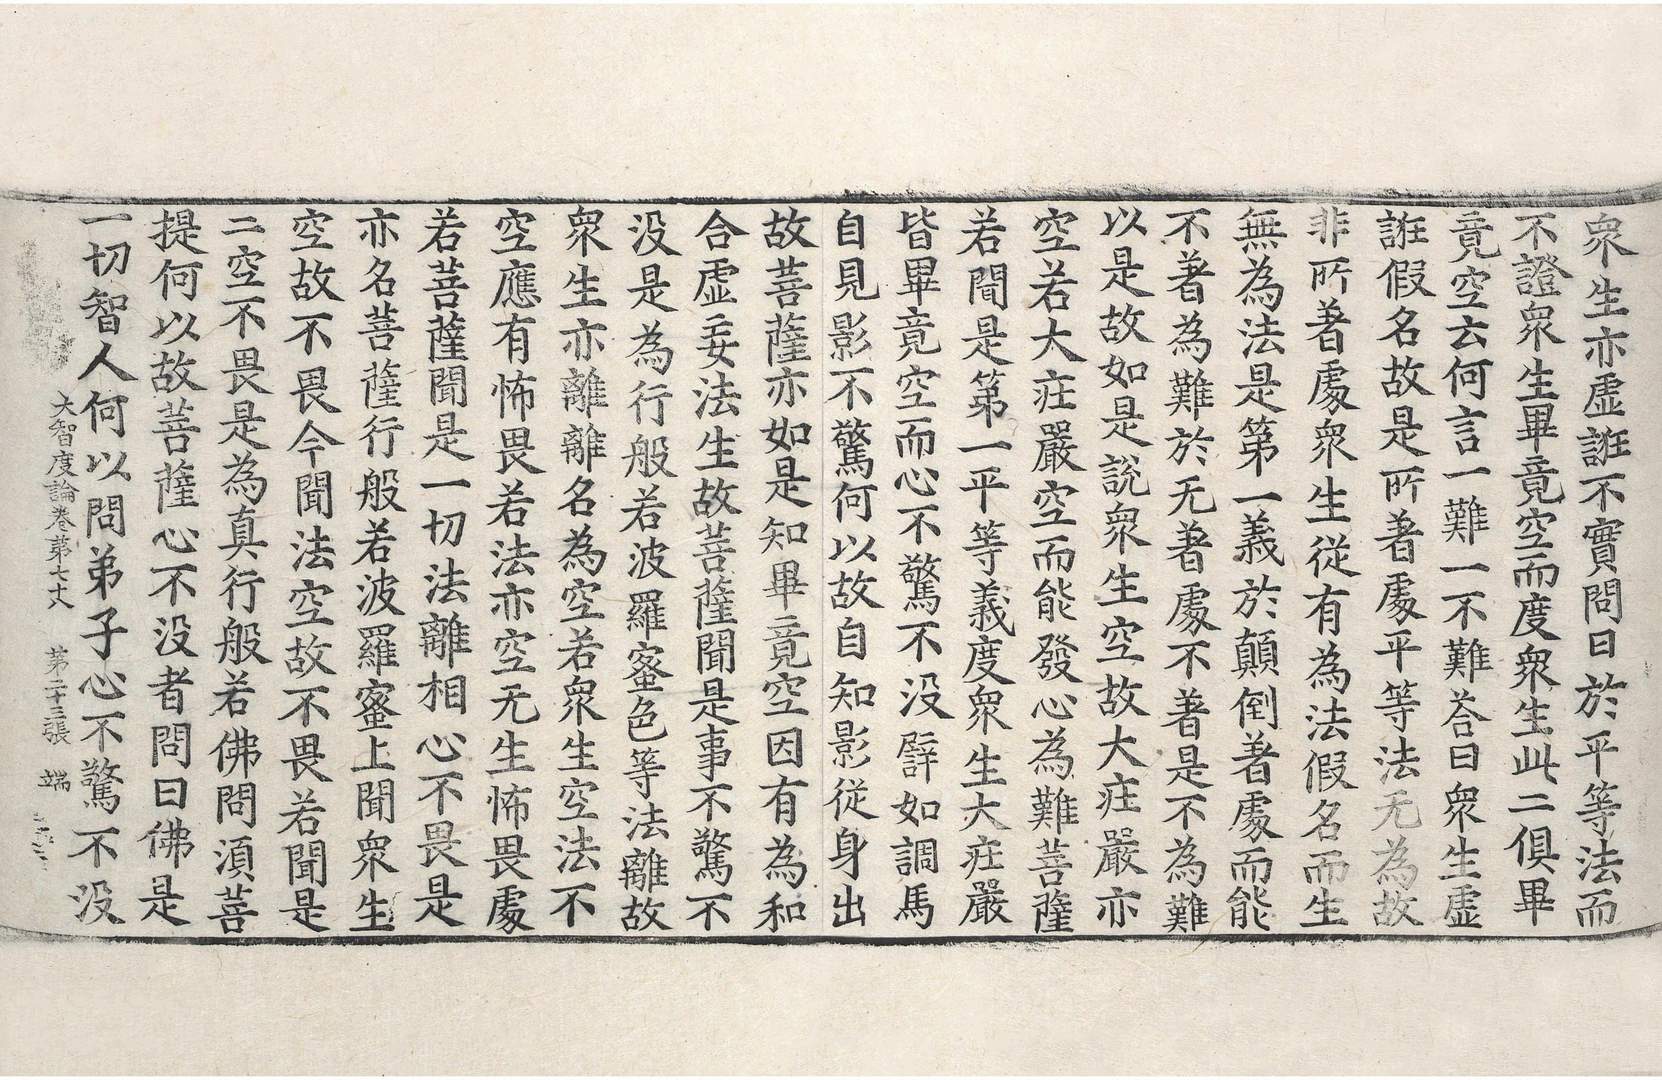 衆生亦虛誑不實問曰於平等法而
不證衆生畢竟空而度衆生此二俱畢
竟空云何言一難一不難荅曰衆生虛
誑假名故是所著處平等法无為故
非所著處衆生從有為法假名而生
無為法是第一義於顛倒著處而能
不著為難於无著處不著是不為難
以是故如是說衆生空故大疘嚴亦
空若大疘嚴空而能發心為難菩薩
若聞是第一平等義度衆生大疘嚴
皆畢竟空而心不驚不没譬如調馬
自見影不驚何以故自知影從身出
故菩薩亦如是知畢竟空因有為和
合虛妄法生故菩薩聞是事不驚不
没是為行般若波羅蜜色等法離故
衆生亦離離名為空若衆生空法不
空應有怖畏若法亦空无生怖畏處
若菩薩聞是一切法離相心不畏是
亦名菩薩行般若波羅蜜上聞衆生
空故不畏今聞法空故不畏若聞是
二空不畏是為真行般若佛問湏菩
提何以故菩薩心不没者問曰佛是
一切智人何以問弟子心不驚不没
大智度論卷第七十八 第二十三張 端